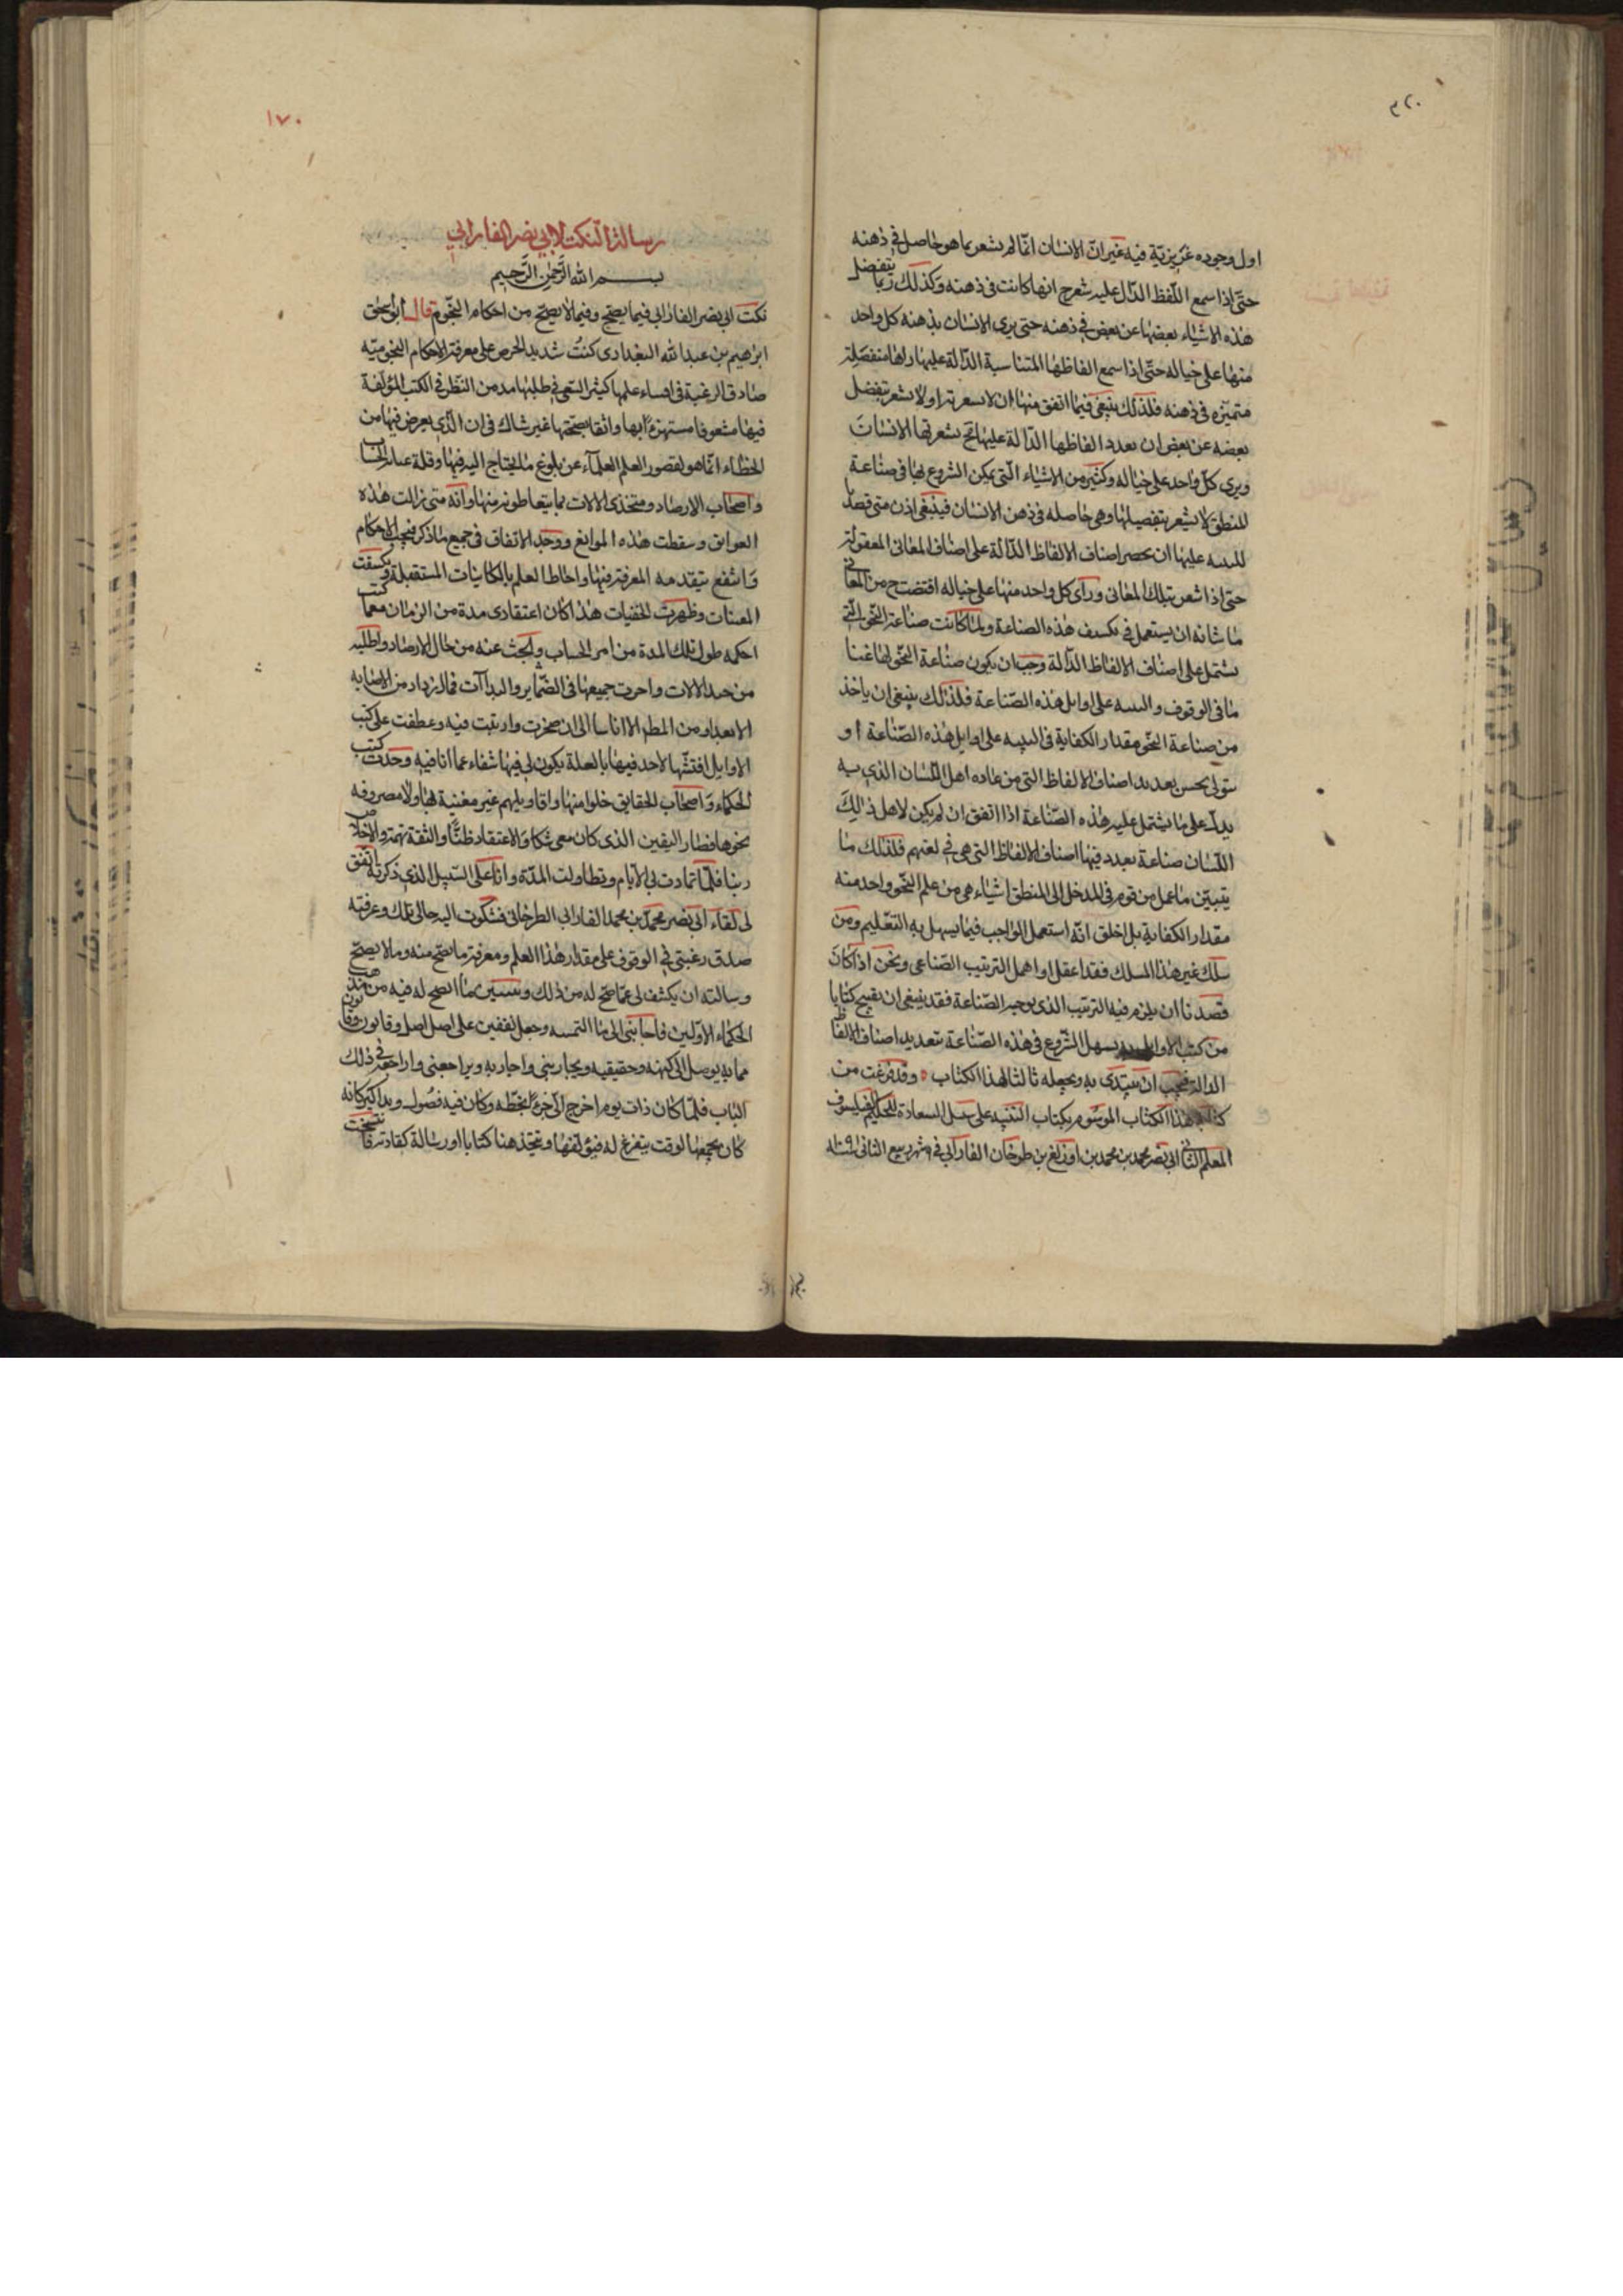 ٣٢٠
اول وجوده غريزيّة فيه غير انّ الانسان انّما لم يشعر بما هو حاصل في ذهنه
حتّى اذا سمع اللّفظ الدّال عليه شعر ح انها كانت في ذهنه وكذلك ربّما ينفصل
هذه الاشياء بعضها عن بعض في ذهنه حتى يرى الانسان بذهنه كل واحد
منها على حياله حتّى اذا سمع الفاظها المتناسبة الدّالة عليها راها منفصلة
متميّزه في ذهنه فلذلك ينبغي فيما اتفق منها ان لا او لا شعر بتفصل
بعضه عن بعض ان يعدد الفاظها الدّالة عليها ح يشعر بها الانسان
ويرى كلّ واحد على حياله وكثير من الاشياء الّتي يمكن الشروع بها في صناعة
المنطق لا يشعر بتفصيلها وهي حاصله في ذهن الانسان فينبغي اذن متى قصدنا
عليها ان يحصر اصناف الالفاظ الدّالة على اصناف المعاني المعقولة
حتى اذا شعر بتلك المعاني وراى كل واحد منها على حياله اقتضت ح من المعاني
ما شانه ان يستعمل في هذه الصناعة ولمّا كانت صناعة النّحو الّتي
تشتمل على اصناف الالفاظ الدّالة وجب ان يكون صناعة النّحو لها غناء
ما في الوقوف و على اوايل هذه الصّناعة فلذلك ينبغي ان ياخذ
من صناعة النّحو مقدار الكفاية في على اوايل هذه الصّناعة او
يتولى بحسن تعديد اصناف الالفاظ التي من عادة اهل اللّسان الذي به
يدلّ على ما يشتمل عليه هذه الصّناعة اذا اتفق ان لم يكن لاهل ذلك
اللّسان صناعة يعدد فيها اصناف الالفاظ التي هي في لغتهم فلذلك ما
يتبيّن ما عمل من قوم في المدخل الى المنطق اشياء هي من علم النّحو واخذ منه
مقدار الكفاية بل اخلق انّه استعمل الواجب فيما يسهل به التّعليم ومن
سلك غير هذا المسلك فقد اغفل او اهمل الترتيب الصّناعي ونحن اذ كان
قصدنا ان يلزم فيه الترتيب الذي يوجبه الصّناعة فقد ينبغي ان كتابا
من كتب الاوايل يسهل الشّروع في هذه الصّناعة بتعديد اصناف الالفاظ
الدالة فيجب ان يبتدى به ويجعله ثالثا لهذا الكتاب ٥ وقد فرغت من
كتابة هذا الكتاب الموسوم بكتاب التنبيه على سبيل السعادة للحكيم الفيلسوف
المعلم الثاني ابي نصر محمد بن محمد بن اوزلغ بن طرخان الفارابي في شهر ربيع الثاني
١٧٠
رسالة النّكت لابي نصر الفارابي
بسم الله الرّحمن الرّحيم
نكت ابي نصر الفارابي فيما يصحّ وفيما لا يصحّ من احكام النّجوم قال ابو اسحق
ابراهيم بن عبد الله البغدادي كنتُ شديد الحرص على معرفة الاحكام النّجوميّة
صادق الرغبة في علمها كثير السّعي في طلبها من النّظر في الكتب المؤلّفة
فيها مشعوفا مستهزءا بها واثقا بصحّتها غير شاك في ان الّذي يعرض فيها من
الخطاء انّما هو لقصور العلم العلمآء عن بلوغ ما يحتاج اليه فيها وقلة الحسّاب
واصحاب الارصاد ومتخذى الالات بما يتعاطونه منها وانّه متى زالت هذه
العوايق وسقطت هذه الموانع ووجد الاتفاق في جميع ما ذكر الاحكام
وانتفع بتقدمه المعرفة فيها واحاط العلم بالكائنات المستقبلة وكسفت
وظهرت الخفيات هذا كان اعتقادي مدة من الزمان
احكمه طول تلك المدة من امر الحساب وابحث عنه من حال الارصاد واطلبه
من الالات جميعها في الضّماير والبداآت فما ازداد من الاصابة
الا بعدا ومن المطلوب الا اناسا الى ان ضجرت وارتبت فيه وعطفت على كتب
الاوايل افتّشها لاجد فيها بالعلة يكون لي فيها شفاء عما انا فيه وجدت كتب
الحكماء واصحاب الحقايق خلوا منها واقاويلهم غير مغنية بها ولا مصروفه
نحوها فصار اليقين الذي كان معي شكا والاعتقاد ظنّا والثقة تهمة والاخلاص
ريبا فلمّا تمادت بي الايّام وتطاولت المدّة وانا على السّبيل الذي ذكرته اتّفق
لي لقاء ابي نصر محمّد بن محمد الفارابي الطرخاني فشكوت اليه حالي تلك وعرفته
صدق رغبتي في الوقوف على مقدار هذا العلم ومعرفة ما يصح منه وما لا يصحّ
وسالته ان يكشف لي عمّا صحّ له من ذلك ما اتضح له فيه من مذهب
الحكماء الاوّلين فاجابني الى ما التمسه وجعل يقفني على اصل اصل وقانون وقانون
مما به يوصل الى كنهه وحقيقته ويجاريني واجاريه ويراجعني واراجعه في ذلك
الباب فلمّا كان ذات يوم اخرج الّي جزءًا بخطّه وكان فيه فصُول وتذاكير كانه
كان يجمعها لوقت يتفرغ له ويتخذ منها كتابا او رسالة كعادته فانتسخت